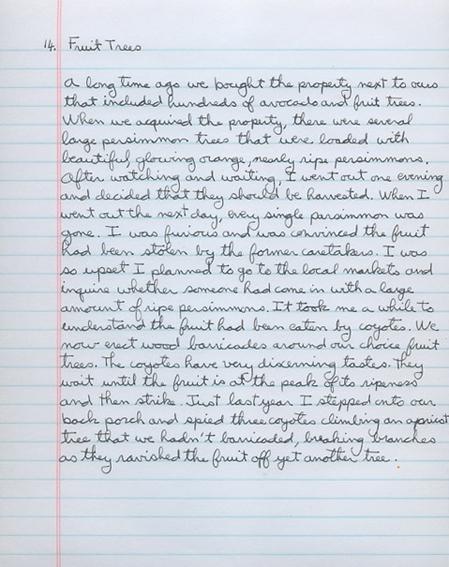 14. Fruit Trees
A long time ago we bought the property next to ours
that included hundreds of avocado and fruit trees.
When we acquired the property, there were several
large persimmon trees that were loaded with
beautiful, glowing orange, nearly ripe persimmons.
After watching and waiting, I went out one evening
and decided that they should be harvested. When I
went out the next day, every single persimmon was
gone. I was furious and was convinced the fruit
had been stolen by the former caretakers. I was
so upset I planned to go to the local markets and
inquire whether someone had come in with a large
amount of ripe persimmons. It took me a while to
understand the fruit had been eaten by coyotes. We
now erect wood barricades around our choice fruit
trees. The coyotes have very discerning tastes. They
wait until the fruit is at the peak of its ripeness
and then strike. Just last year I stepped onto our
back porch and spied three coyotes climbing an apricot
tree that we hadn't barricaded, breaking branches
as they ravished the fruit off yet another tree.